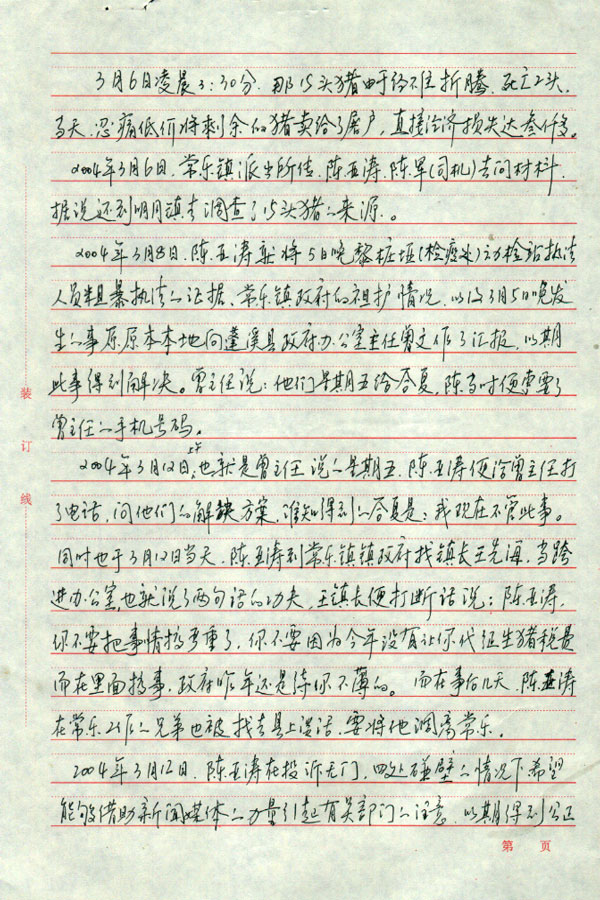 3月6日凌晨3:30分.那15头猪由于经不住折腾、死亡2头,
当天.忍痛低价将剩余的猪卖给了屠户,直接经济损失达叁仟多。
2004年3月6日.常乐镇派出所传.陈亚涛.陈军(司机)去问材料.
据说还到明月镇去调查了15头猪的来源.。
2004年3月8日.陈亚涛就将5日晚黎桩垭(检疫处)动检站执法
人员粗暴执法的证据、常乐镇政府的袒护情况.以及3月5日晚发
生的事原原本本地向蓬溪县政府办公室主任曾文作了汇报.以期
此事得到解决。曾主任说:他们星期五给答复,陈当时便索要了
曾主任的手机号码。
2004年3月12日上午,也就是曾主任说的星期五.陈亚涛便给曾主任打
了电话,问他们的解决方案,谁知得到的答复是:我现在不管此事。
同时也于3月12日当天.陈亚涛到常乐镇镇政府找镇长王先海,当跨
进办公室,也就说了两句话的功夫,王镇长便打断话说:陈亚涛,
你不要把事情搞严重了,你不要因为今年没有让你代征生猪税费
而在里面搞事,政府昨年还是待你不薄的。而在事后几天.陈亚涛
在常乐工作的兄弟也被找去县上谈话.要将他调离常乐.
2004年3月12日.陈亚涛在投诉无门,四处碰壁的情况下希望
能够借助新闻媒体的力量引起有关部门的注意.以期得到公正
装
订
线
第 页